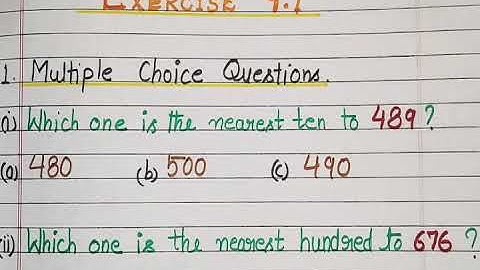 EXERCISE 9.1
1. Multiple Choice Questions.
(i) Which one is the nearest ten to 489?
(a) 480 (b) 500 (c) 490
(ii) Which one is the nearest hundred to 676 ?